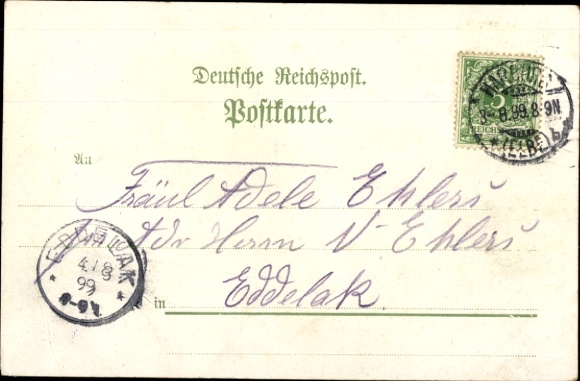 Deutsche Reichspost.
Postkarte.
An
Fräul Adele Ehlers
Adr Herrn V Ehlers
in Eddelak.
3 8 99 8-9N
* (ELBE) b
REICH
EDDELAK
4/8
99